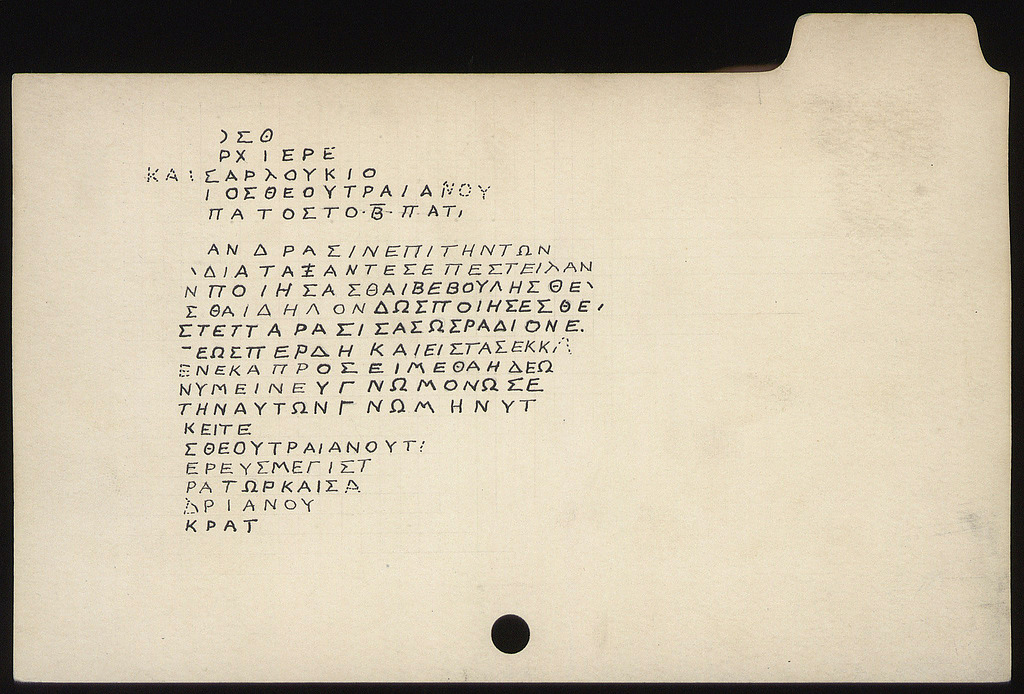 ΟΣΘ
ΡΧΙΕΡΕ
ΚΑΙΣΑΡΛΟΥΚΙΟ
ΙΟΣΘΕΟΥΤΡΑΙΑΝΟΥ
ΠΑΤΟΣΤΟ·Β̅·ΠΑΤ
ΑΝΔΡΑΣΙΝΕΠΙΤΗΝΤΩΝ
ΔΙΑΤΑΞΑΝΤΕΣΕΠΕΣΤΕΙΛΑΝ
ΝΠΟΙΗΣΑΣΘΑΙΒΕΒΟΥΛΗΣΘΕ
ΣΘΑΙΔΗΛΟΝΔΩΣΠΟΙΗΣΕΣΘΕ
ΣΤΕΤΤΑΡΑΣΙΣΑΣΩΣΡΑΔΙΟΝΕ
ΕΩΣΠΕΡΔΗΚΑΙΕΙΣΤΑΣΕΚΚΛ
ΕΝΕΚΑΠΡΟΣΕΙΜΕΘΑΗΔΕΩ
ΝΥΜΕΙΝΕΥΓΝΩΜΟΝΩΣΕ
ΤΗΝΑΥΤΩΝΓΝΩΜΗΝΥΤ
ΚΕΙΤΕ
ΣΘΕΟΥΤΡΑΙΑΝΟΥΥ
ΕΡΕΥΣΜΕΓΙΣΤ
ΡΑΤΩΡΚΑΙΣΑ
ΔΡΙΑΝΟΥ
ΚΡΑΤ